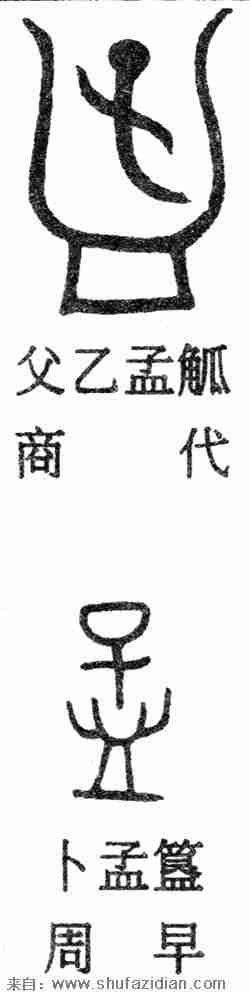 孟
父乙孟觚
商代
孟
卜孟簋
周早
来自：www.shufazidian.com